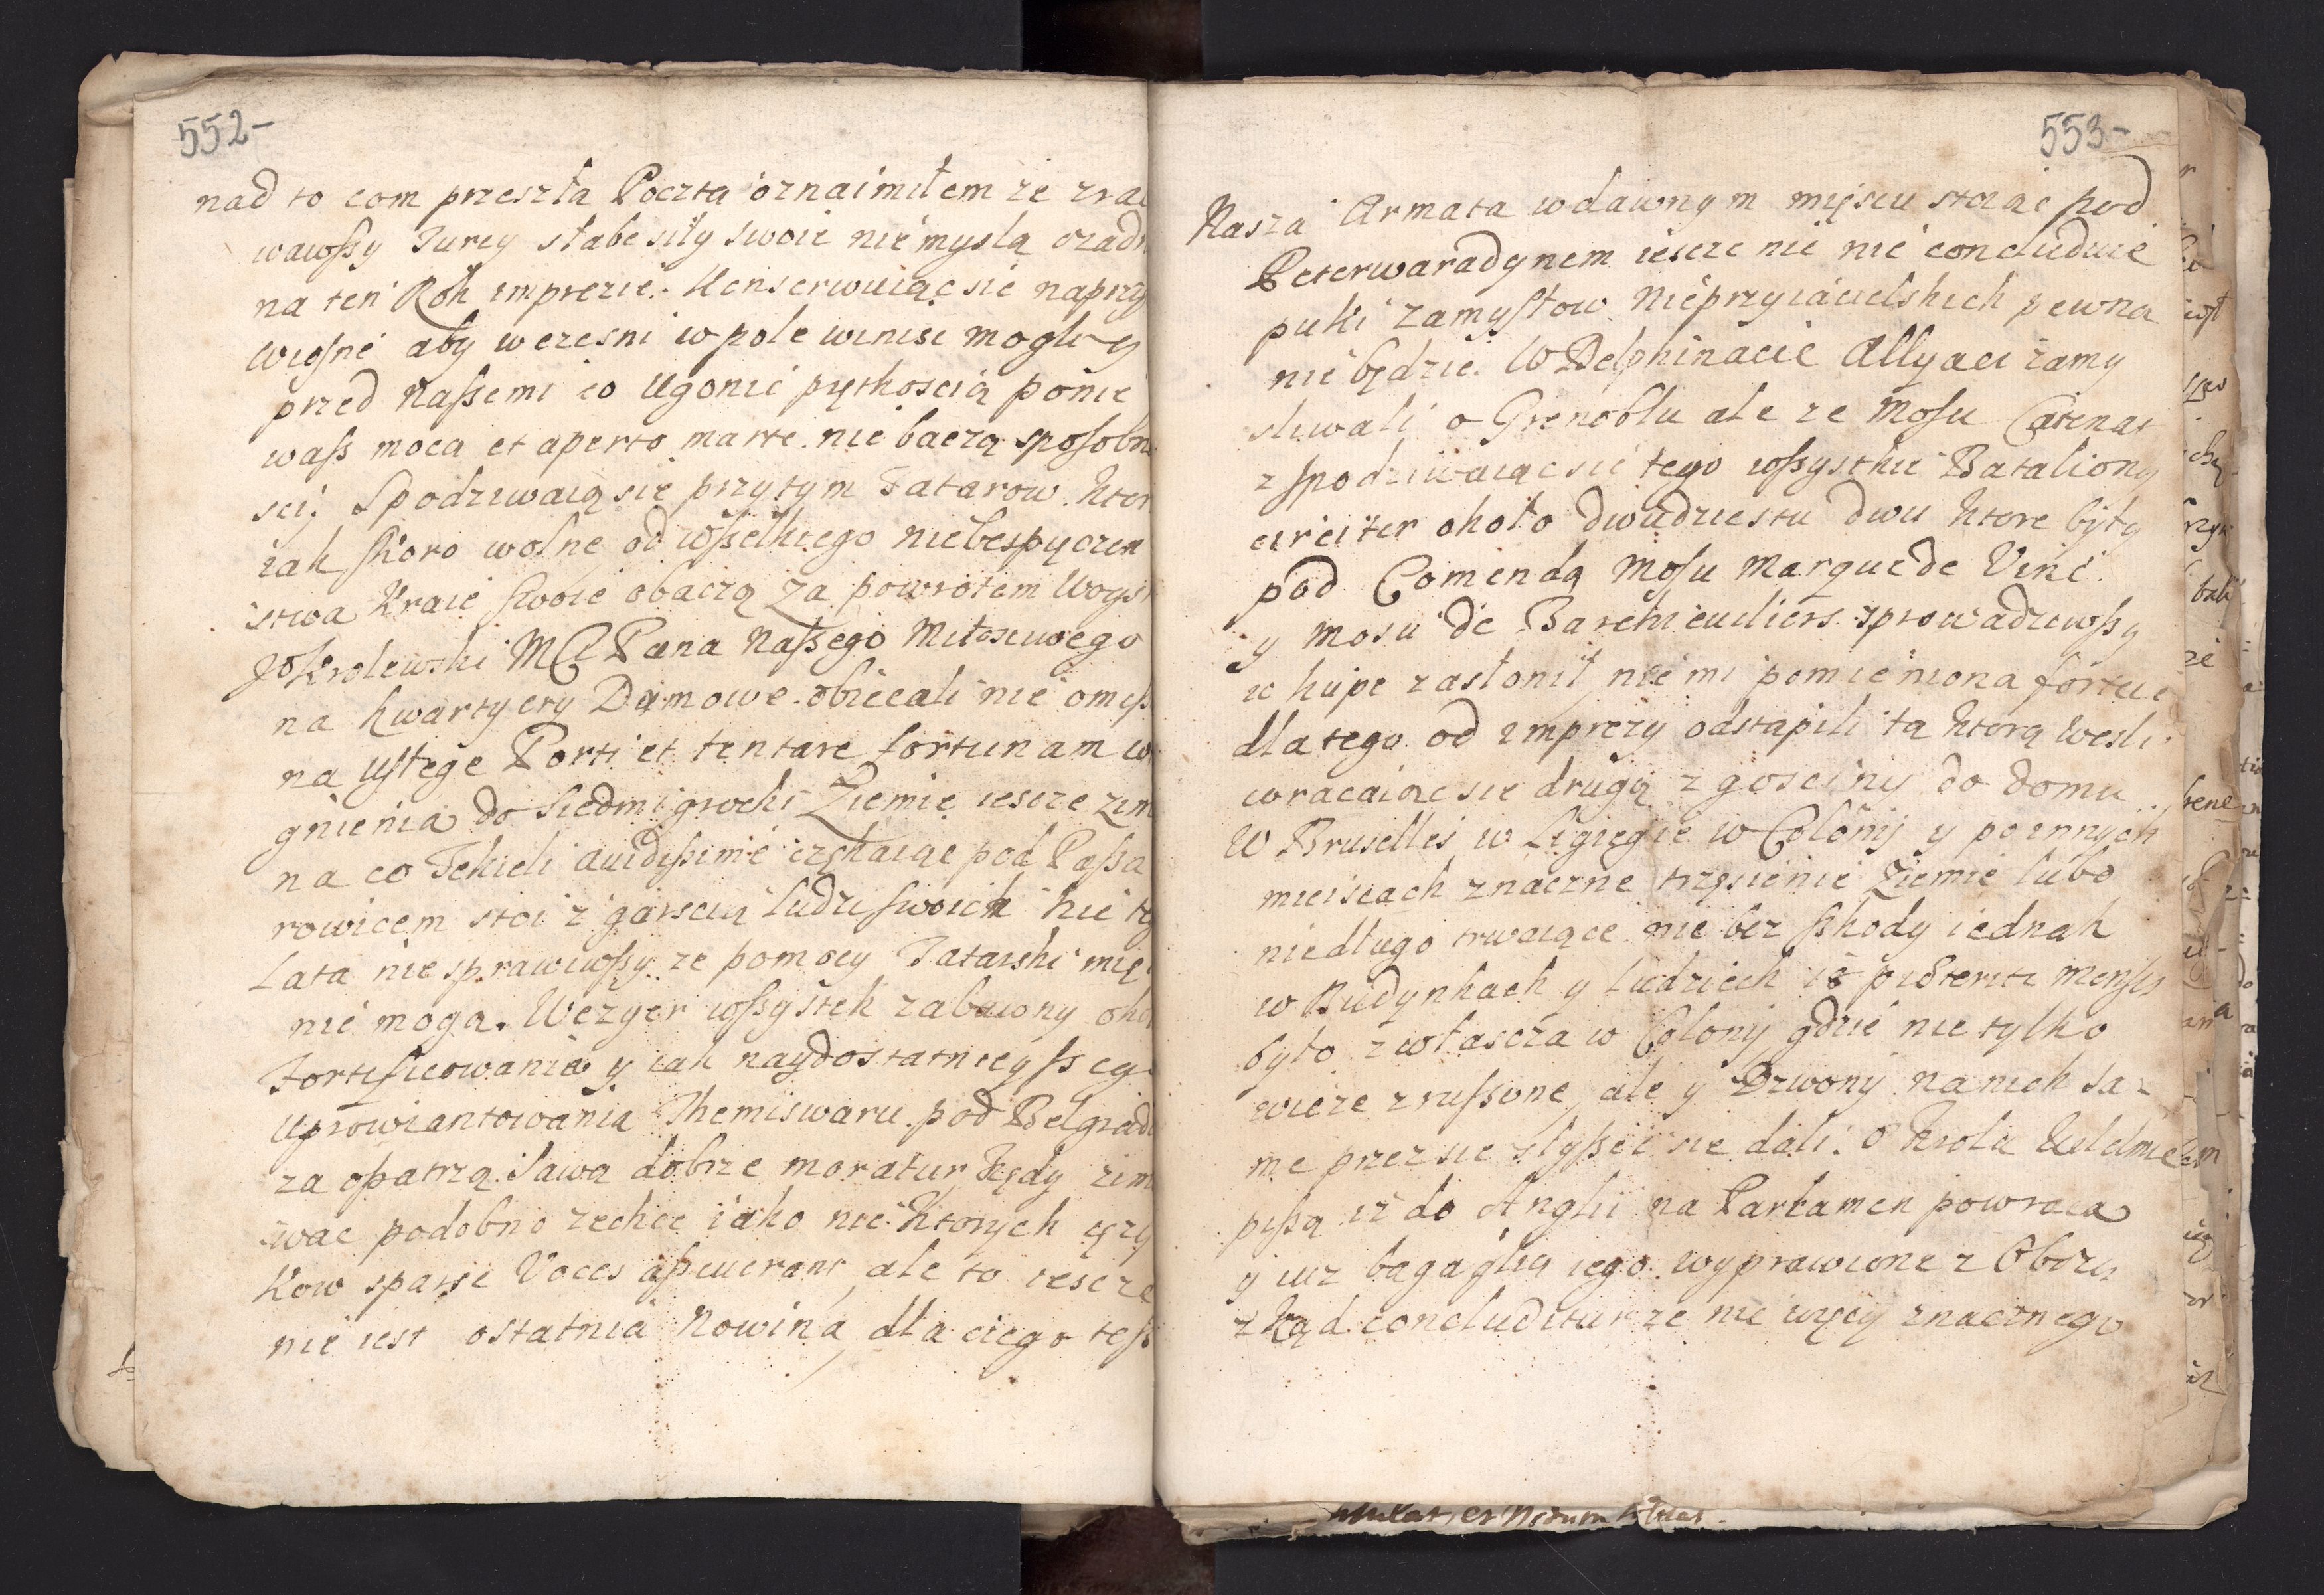 552-
nad to com przeszła Poczta oznaimiłem ze zra
wawßy Turcy słabe siły swoie nie myslą ozad
na ten Rok imprezie. Konserwuiąc się naprzy
wiosnę aby wczesni w pole winisc mogli y
przed naßemi co ugonić pętkoscią ponie
waß mocą et aperto marte nie baczą sposobn
sci. Spodziwaią się przytym Tatarow. Ktor
iak skoro wolne od wßelkiego niebespyczen
stwa Kraie swoie obaczą za powrotem Woys
JoKrolewski MC Pana Naßego Miłosciwego
na kwartyery Damowe. obiecali nie omiß
na usłege Porti et tentare fortunam w
gnienia do Siedmigrocki Ziemie iescze zim
na co Tekieli avidißime czękaiąc pod Paßa
rowicem stoi z garscią ludzi swoich nie te
Lata nie sprawiwßy ze pomocy Tatarski mię
nie mogą. Wezyer wßystek zabawony oko
Fortificowania y iak naydostatnieyßeg
uprowiantowania Themiswaru. pod Belgrad
za opatrzą Sawą dobrze moratur kędy zim
wac podobno zechce iako nie Ktorych ięzy
Kow sparse Voces aßeuerant ale to iescze
nie iest ostatnia Nowina, dla ciego teß
553-
Nasza Armata w dawnym mięscu stoiąc pod
Peterwaradynem iescze nic nie concluduie
puki zamysłow Nieprzyiacielskich pewna
nie będzie. W Delphinacie Allyaci zamy
sliwali o Grenoblu ale ze Mosu Catenat
zspodziwaiąc się tego wßystkie Bataliony
circiter około dwudziestu dwu Ktore były
pod Comendą Mosu Marque de Vine
y Mosu de Barchieuiliers sprowadziwßy
w kupe zasłonił niemi pomieniona fortece
dla tego od imprezy odstapili tą ktorą wesli
wracaiąc się drugą z gosciny do domu
W Bruselles w Ligięgie w Colonij y po innych
mieiscach znaczne trzęsienie Ziemie lubo
niedługo trwaiące nie bez ßkody iednak
w Budynkach y ludziech 18 præteriti Mensis
było zwłascza w Colonij gdzie nie tylko
wieże zrußone, ale y Dzwony na nich sa-
me przez się słyßeć się dali. O Krolu Wilelmie
pißą iż do Anglii na Parlamen powraca
y iuz bagaglia iego wyprawione z Obozu
zkąd concluditur ze nic więcy znacznego